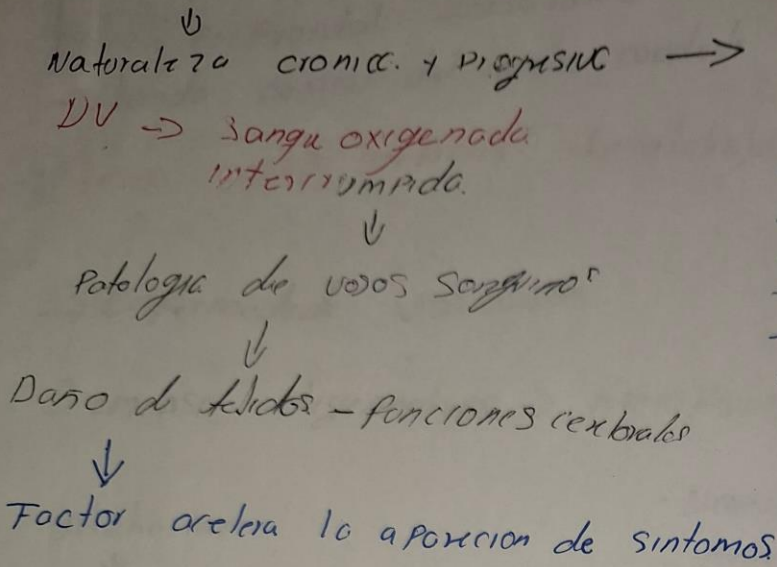 ↓
Naturaleza cronica. y Progresiva →
DV → Sangre oxigenada
interrumpida.
↓
Patologia de vasos sanguineos
↓
Daño de tejidos - funciones cerebrales
↓
Factor acelera la aparicion de sintomas